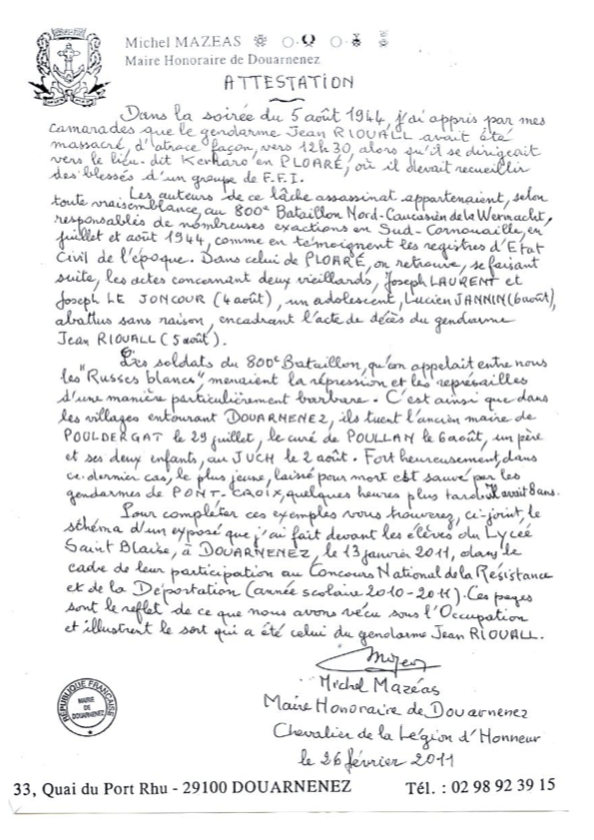 Michel MAZEAS
Maire Honoraire de Douarnenez
ATTESTATION
Dans la soirée du 5 août 1944, j'ai appris par mes
camarades que le gendarme Jean RIOUALL avait été
massacré, d'atroce façon, vers 12h30, alors qu'il se dirigeait
vers le lieu-dit Kerharo en PLOARÉ, où il devait recueillir
des blessés d'un groupe de F.F.I.
Les auteurs de ce lâche assassinat appartenaient, selon
toute vraisemblance, au 800e Bataillon Nord-Caucasien de la Wermacht,
responsables de nombreuses exactions en Sud-Cornouaille, en
juillet et août 1944, comme en témoignent les registres d'Etat
Civil de l'époque. Dans celui de PLOARÉ, on retrouve, se faisant
suite, les actes concernant deux vieillards, Joseph LAURENT et
Joseph LE JONCOUR (4 août), un adolescent, Lucien JANNIN (6 août),
abattus sans raison, encadrant l'acte de décès du gendarme
Jean RIOUALL (5 août).
Les soldats du 800e Bataillon, qu'on appelait entre nous
les "Russes blancs", menaient la répression et les représailles
d'une manière particulièrement barbare. C'est ainsi que dans
les villages entourant DOUARNENEZ, ils tuent l'ancien maire de
POULDERGAT le 29 juillet, le curé de POULLAN le 6 août, un père
et ses deux enfants, au JUCH le 2 août. Fort heureusement, dans
ce dernier cas, le plus jeune, laissé pour mort est sauvé par les
gendarmes de PONT-CROIX, quelques heures plus tard. Il avait 8 ans.
Pour compléter ces exemples vous trouverez, ci-joint, le
schéma d'un exposé que j'ai fait devant les élèves du Lycée
Saint Blaise, à DOUARNENEZ, le 13 janvier 2011, dans le
cadre de leur participation au Concours National de la Résistance
et de la Déportation (année scolaire 2010-2011). Ces pages
sont le reflet de ce que nous avons vécu sous l'Occupation
et illustrent le sort qui a été celui du gendarme Jean RIOUALL.
Michel Mazéas
Maire Honoraire de Douarnenez
Chevalier de la Légion d'Honneur
le 26 février 2011
RÉPUBLIQUE FRANÇAISE
MAIRIE
DE
DOUARNENEZ
33, Quai du Port Rhu - 29100 DOUARNENEZ Tél. : 02 98 92 39 15